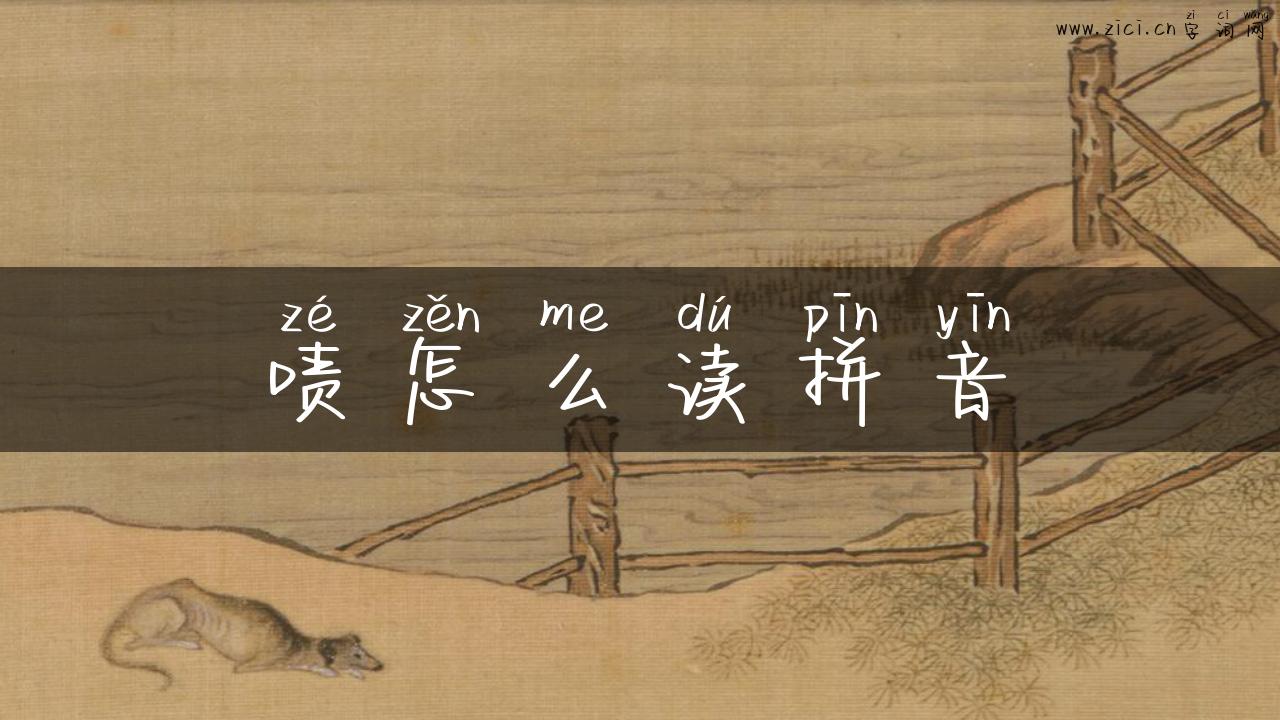 zi ci wang
www.zici.cn 字词网
zé zěn me dú pīn yīn
啧怎么读拼音